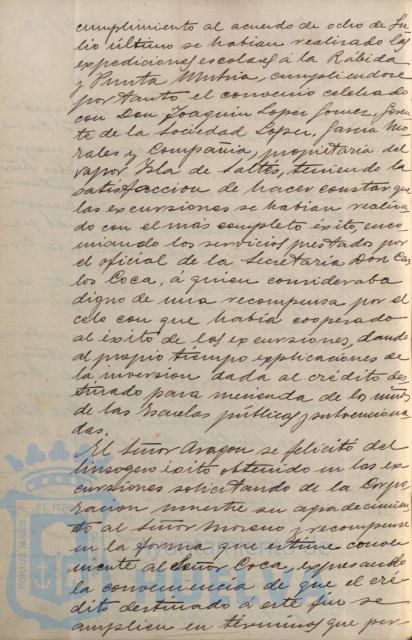 cumplimiento al acuerdo de ocho de Ju-
lio último se habian realizado las
expediciones escolares á la Rábida
y Punta Umbria, cumpliendose
por tanto el convenio celebrado
con Don Joaquin Lopez Gomez, Geren-
te de la Sociedad Lopez, Garcia Mo-
rales y Compañia, propietaria del
vapor Isla de Saltés, teniendo la
satisfaccion de hacer constar que
las excursiones se habian realiza-
do con el más completo éxito, enco-
miando los servicios prestados por
el oficial de la Secretaria Don Car-
los Coca, á quien consideraba
digno de una recompensa por el
celo con que habia cooperado
al éxito de las excursiones, dando
al propio tiempo explicaciones de
la inversion dada al crédito des-
tinado para merienda de los niños
de las Escuelas públicas y subvenciona-
das.
El Señor Aragon se felicitó del
lisongero éxito obtenido en las ex-
cursiones solicitando de la Corpo-
racion muestre su agradecimien-
to al Señor Moreno y recompense
en la forma que estime conve-
niente al Señor Coca, expresando
la conveniencia de que el cré-
dito destinado á este fin se
amplien en términos que per-
PORTUS MARIS
ET TERRE
AYUNTAMIENTO DE
HUELVA